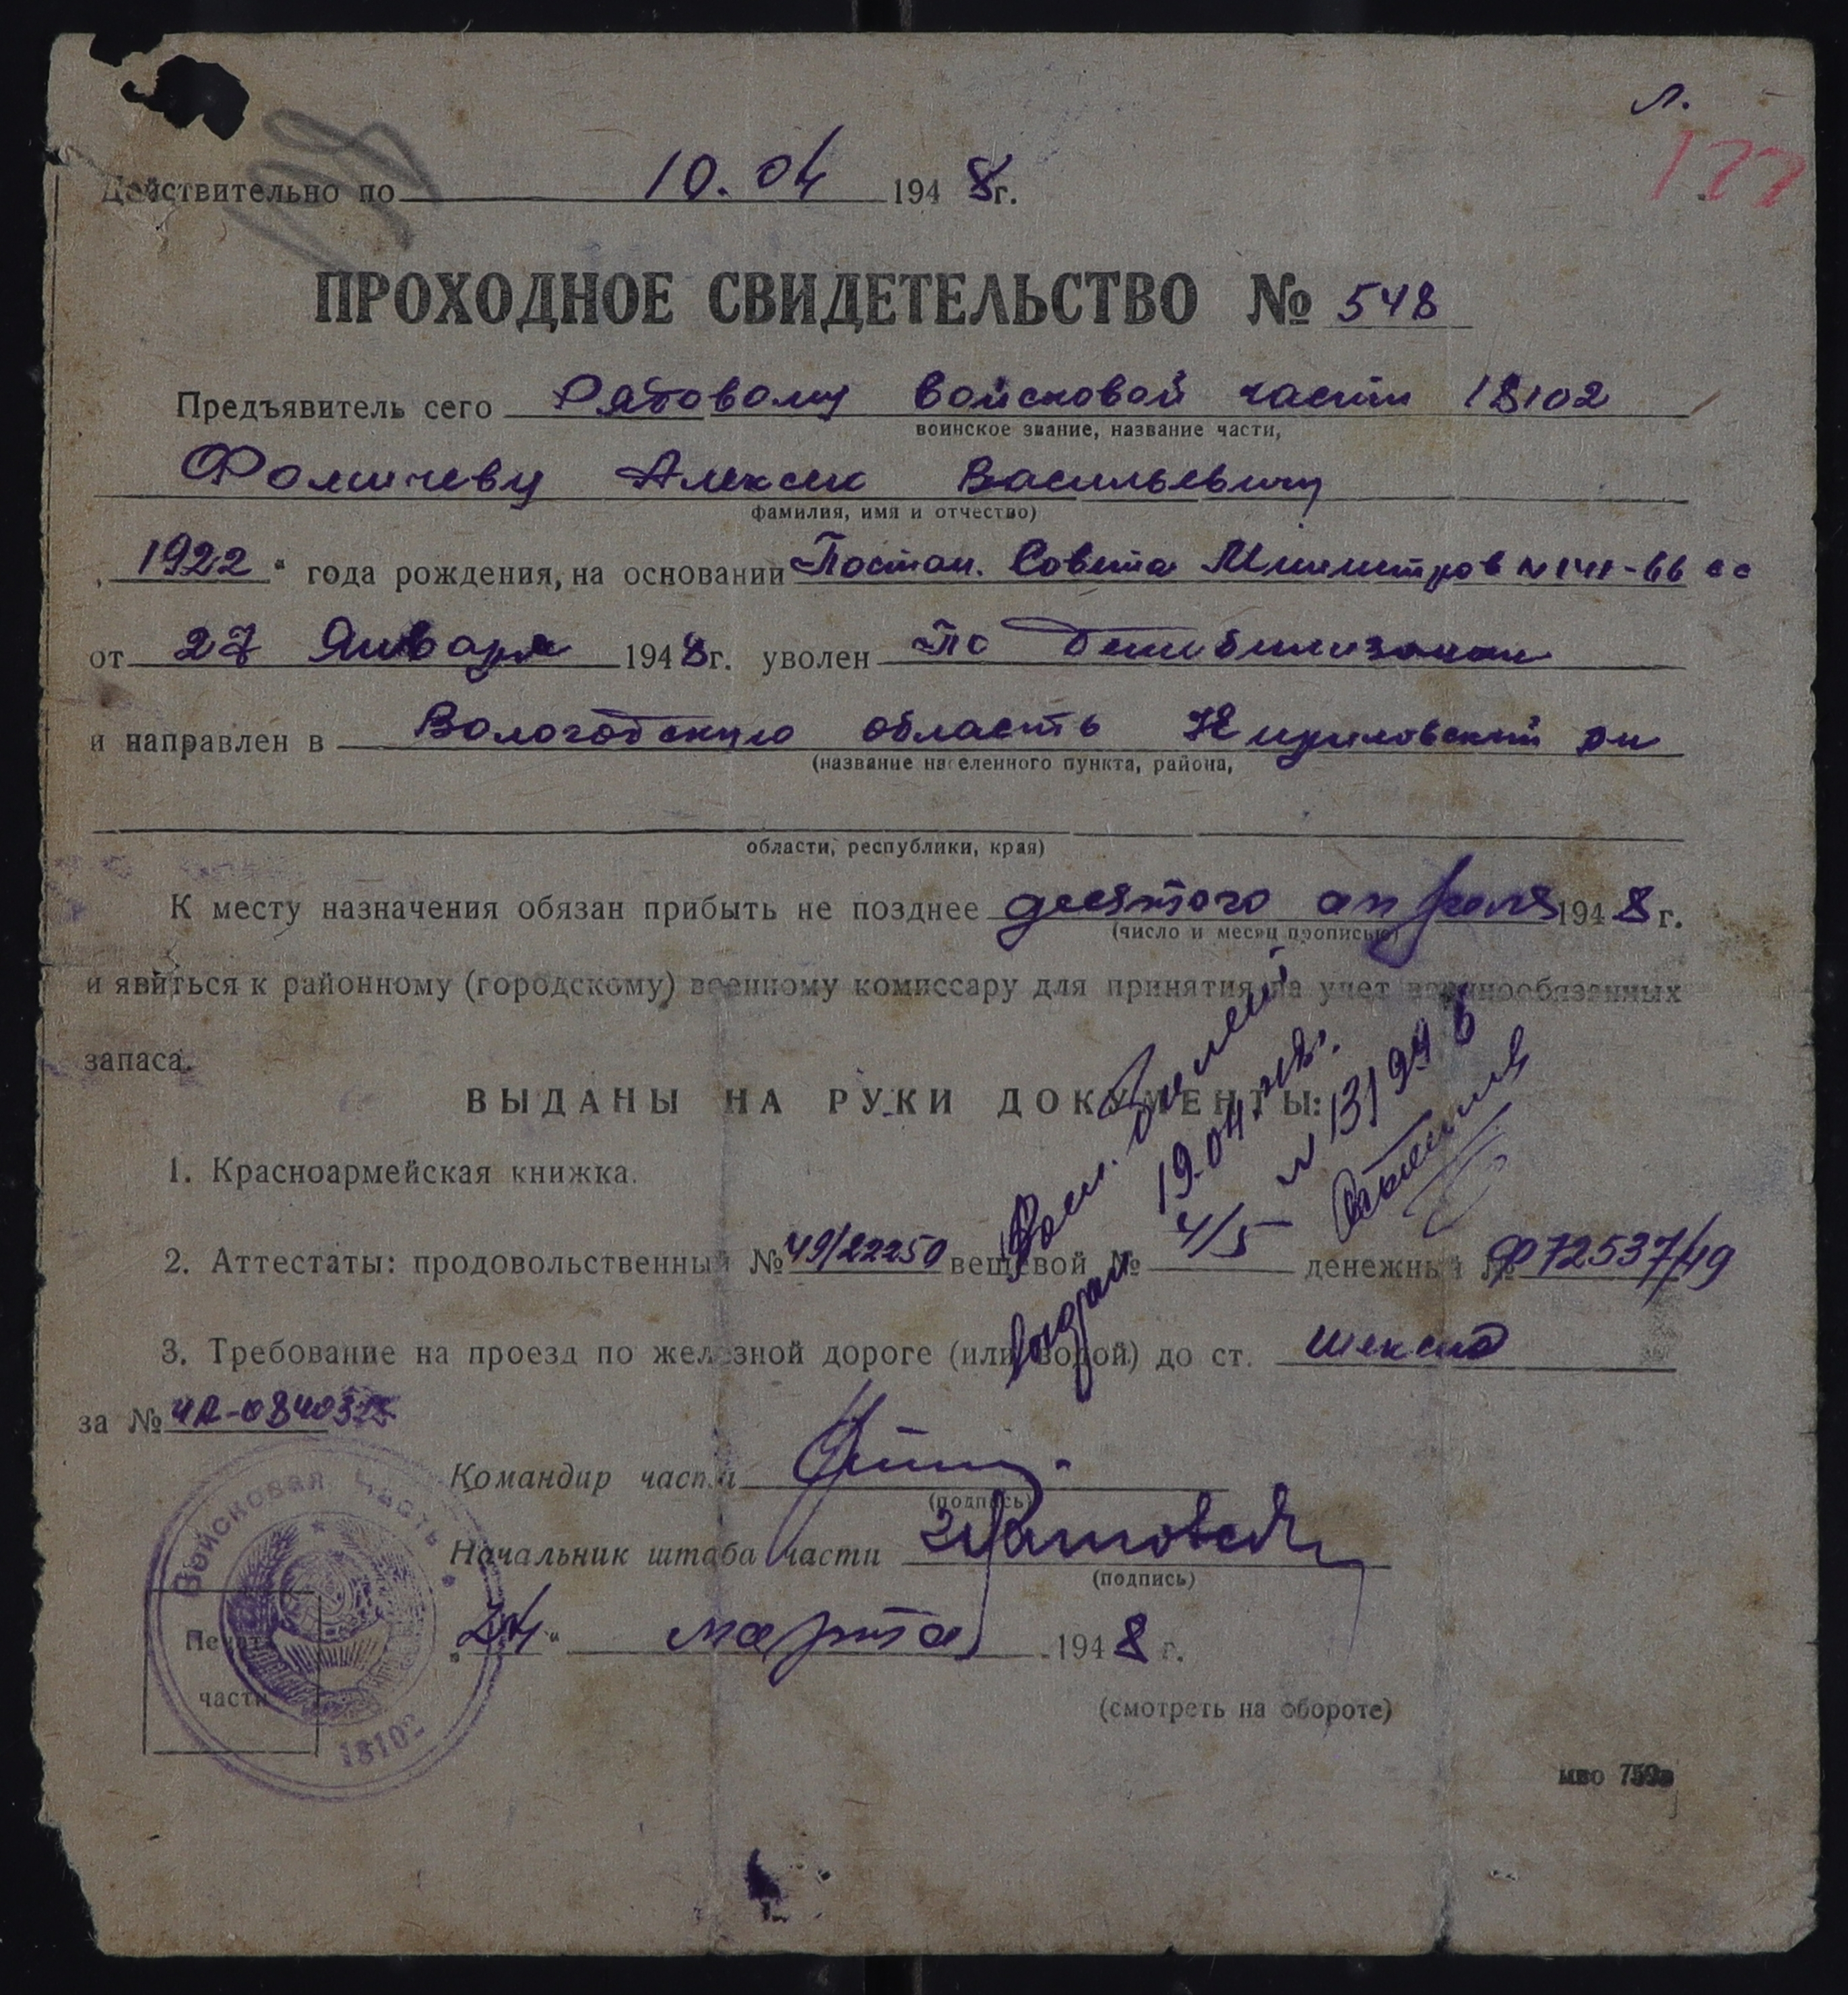 л.
122
Действительно по 10.04 1948г.
ПРОХОДНОЕ СВИДЕТЕЛЬСТВО № 548
Предъявитель сего Рядовому войсковой части 18102
воинское звание, название части,
Фомичеву Алексек Васильевичу
фамилия, имя и отчество)
„1922“ года рождения, на основании Постан. Совета Министров №141-66 сс
от 27 Января 1948г. уволен По демобилизации
и направлен в Вологодскую область Кириловский рн
(название населенного пункта, района,
области, республики, края)
К месту назначения обязан прибыть не позднее десятого апреля 1948 г.
(число и месяц прописью)
и явиться к районному (городскому) военному комиссару для принятия на учет военнообязанных
запаса.
ВЫДАНЫ НА РУКИ ДОКУМЕНТЫ:
1. Красноармейская книжка.
2. Аттестаты: продовольственный № 49/22250 вещевой № денежный № Ф72537/49
3. Требование на проезд по железной дороге (или водой) до ст. Шексна
за № ЧА-084032
Воен. билет
выдан 19.04.48г.
4/5 № 131946
Командир части
(подпись)
Начальник штаба части
(подпись)
„24“ марта 1948 г.
Войсковая часть
18102
Печать
части
(смотреть на обороте)
мво